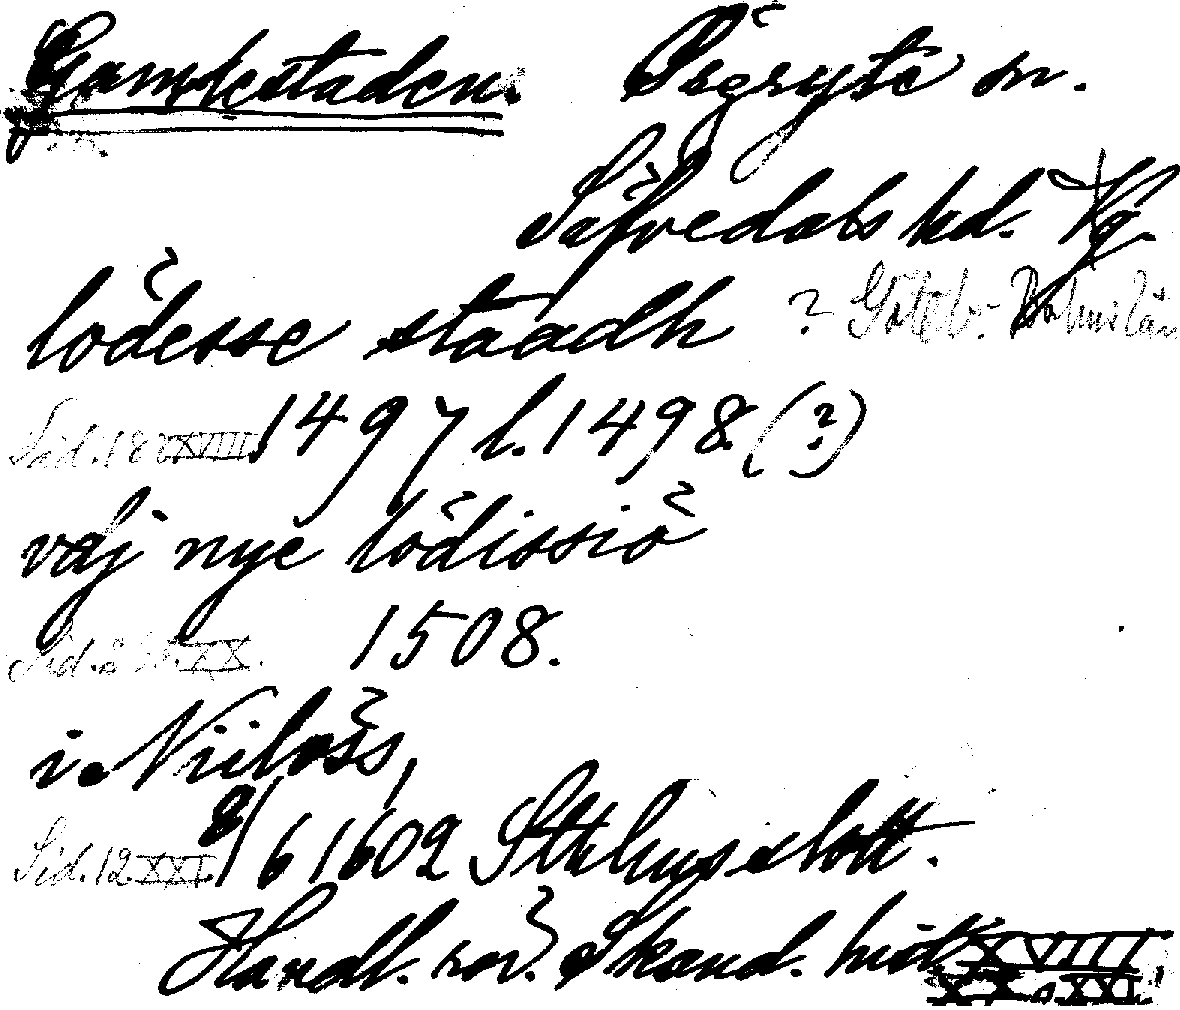 Gamlestaden. Örgryte sn.
Säfvedals hd. Vg.
lödesse staadh ? Göteb. Bohuslän
Sid. 18 XXVIII. 1497 l. 1498 (?)
vdj nye lödissiö
Sid. XX. 1508.
i Niilöss,
Sid. 12 XXI. 8/6 1602 Sthlms slott.
Handl. rör. Skand. hist. XXVIII
XX. o. XXI.